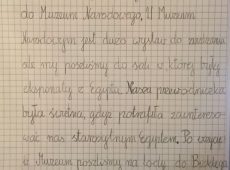 do Muzeum Narodowego. W Muzeum
Narodowym jest dużo wystaw do
ale my poszliśmy do sali w której były
eksponaty z Egiptu. Nasza przewodniczka
była świetna, gdyż potrafiła zaintereso-
wać nas starożytnym Egiptem. Po
w Muzeum poszliśmy na lody do